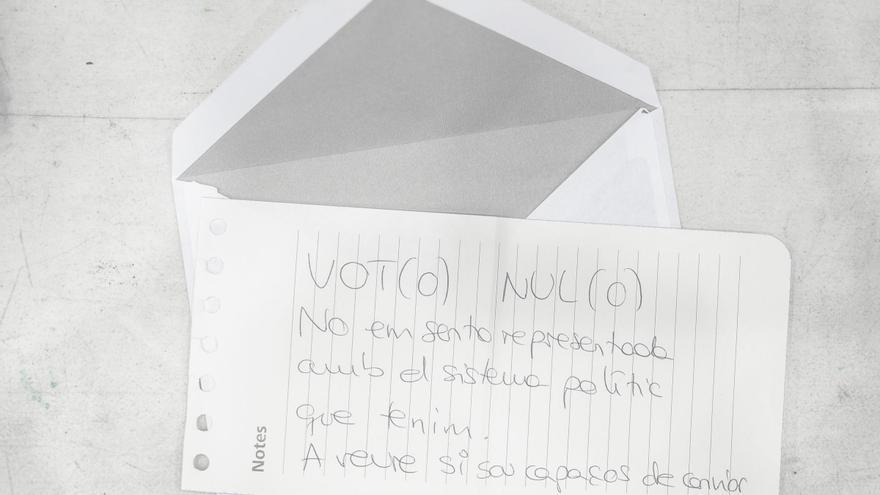 VOT(O) NUL(O)
No em sento representada
amb el sistema polític
que tenim.
A veure si sou capaços de canviar
Notes